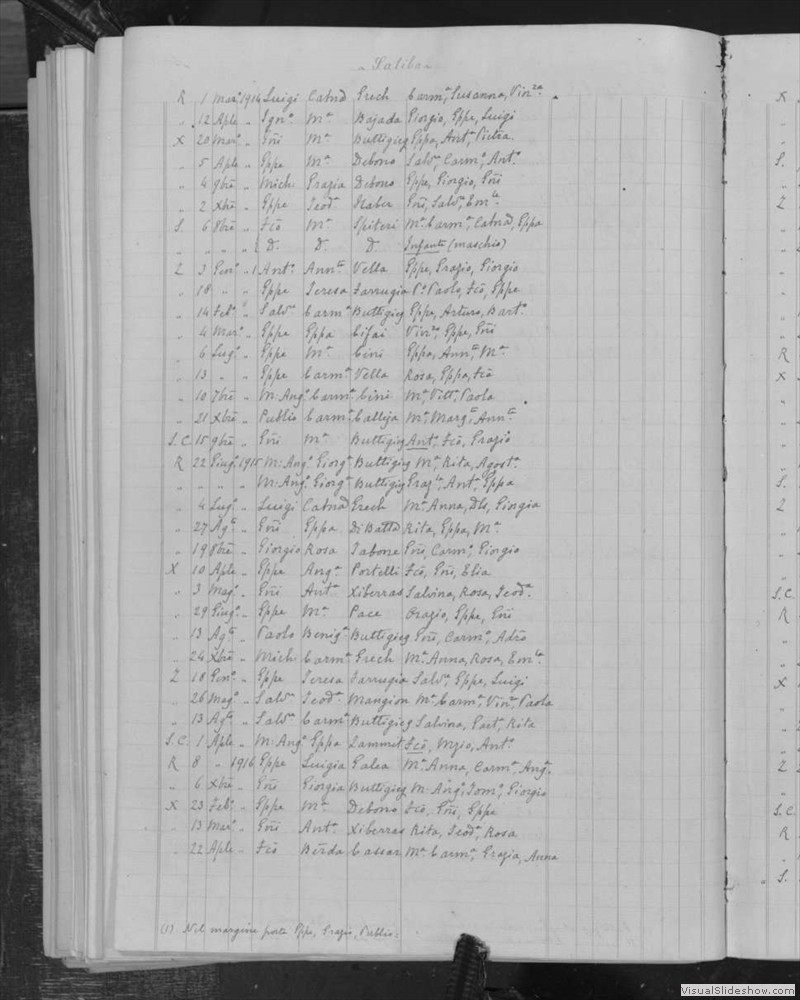 Saliba
R 1 Mar.º 1914 Luigi Catnd Grech Carm.ª, Susanna, Vin.za
„ 12 Aple „ Ign.º M.ª Bajada Giorgio, Gppe, Luigi
X 20 Mar.º „ Gñi M.ª Buttigieg Gppa, Ant.ª, Pietra
„ 5 Aple „ Gppe M.ª Debono Salv.ª Carm.º, Ant.º
„ 4 9bre „ Mich. Grazia Debono Gppe, Giorgio, Gñi
„ 2 Xbre „ Gppe Teod.ª Gñi, Salv.ª, Em.le
S. 6 8bre „ Fcõ M.ª Spiteri M.ª Carm.ª, Catnd, Gppa
„ „ „ „ D.º D.º D.º Infante (maschio)
Z 3 Gen.º „ Ant.º Ann.ta Vella Gppe, Grazio, Giorgio
„ 18 „ „ Gppe Teresa Farrugia P.º Paolo, Fcõ, Gppe
„ 14 Feb.º „ Salv.re Carm.ª Buttigieg Gppe, Arturo, Bart.º
„ 4 Mar.º „ Gppe Gppa Cifai Vin.zo, Gppe, Gñi
„ 6 Lug.º „ Gppe M.ª Cini Gppa, Ann.ta, M.ª
„ 13 „ „ Gppe Carm.ª Vella Rosa, Gppa, Fcõ
„ 10 7bre „ M: Ang.º Carm.ª Cini M.ª, Vitt.ª, Paola
„ 21 Xbre „ Publio Carm.ª Calleja M.ª, Marg.ta, Ann.ta
S.C. 15 9bre „ Gñi M.ª Buttigieg Ant.º, Fcõ, Grazio
R 22 Giug.º 1915 M: Ang.º Giorg.ª Buttigieg M.ª, Rita, Agost.ª
„ „ „ „ M: Ang.º Giorg.ª Buttigieg Graz.la, Ant.ª, Gppa
„ 4 Lug.º „ Luigi Catnd Grech M.ª Anna, Dls, Giorgia
„ 27 Ag.to „ Gñi Gppa Di Batta Rita, Gppa, M.ª
„ 19 8bre „ Giorgio Rosa Tabone Gñi, Carm.º, Giorgio
X 10 Aple „ Gppe Ang.ª Portelli Fcõ, Gñi, Elia
„ 3 Mag.º „ Gñi Ant.ª Xiberras Salvina, Rosa, Teod.ª
„ 29 Giug.º „ Gppe M.ª Pace Orazio, Gppe, Gñi
„ 13 Ag.to „ Paolo Benig.ª Buttigieg Gñi, Carm.º, Adrõ
„ 24 Xbre „ Mich. Carm.ª Grech M.ª Anna, Rosa, Em.la
Z 18 Gen.º „ Gppe Teresa Farrugia Salv.re, Gppe, Luigi
„ 26 Mag.º „ Salv.re Teod.ª Mangion M.ª Carm.ª, Vin.za, Paola
„ 13 Ag.to „ Salv.re Carm.ª Buttigieg Salvina, Rita
S.C. 1 Aple „ M: Ang.º Gppa Zammit Fcõ, Mzio, Ant.º
R 8 „ 1916 Gppe Luigia Galea M.ª Anna, Carm.ª, Ang.ª
„ 6 Xbre „ Gñi Giorgia Buttigieg M: Ang.º, Tom.º, Giorgio
X 23 Feb.º „ Gppe M.ª Debono Fcõ, Gñi, Gppe
„ 13 Mar.º „ Gñi Ant.ª Xiberras Rita, Teod.ª, Rosa
„ 22 Aple „ Fcõ Berda Cassar M.ª Carm.ª, Grazia, Anna
(1) Nel margine porta Gppe, Grazio, Publio.
R
S.
Z
R
X
S.
Z
S.C.
R
X
Z
S.C.
R
S.
VisualSlideshow.com